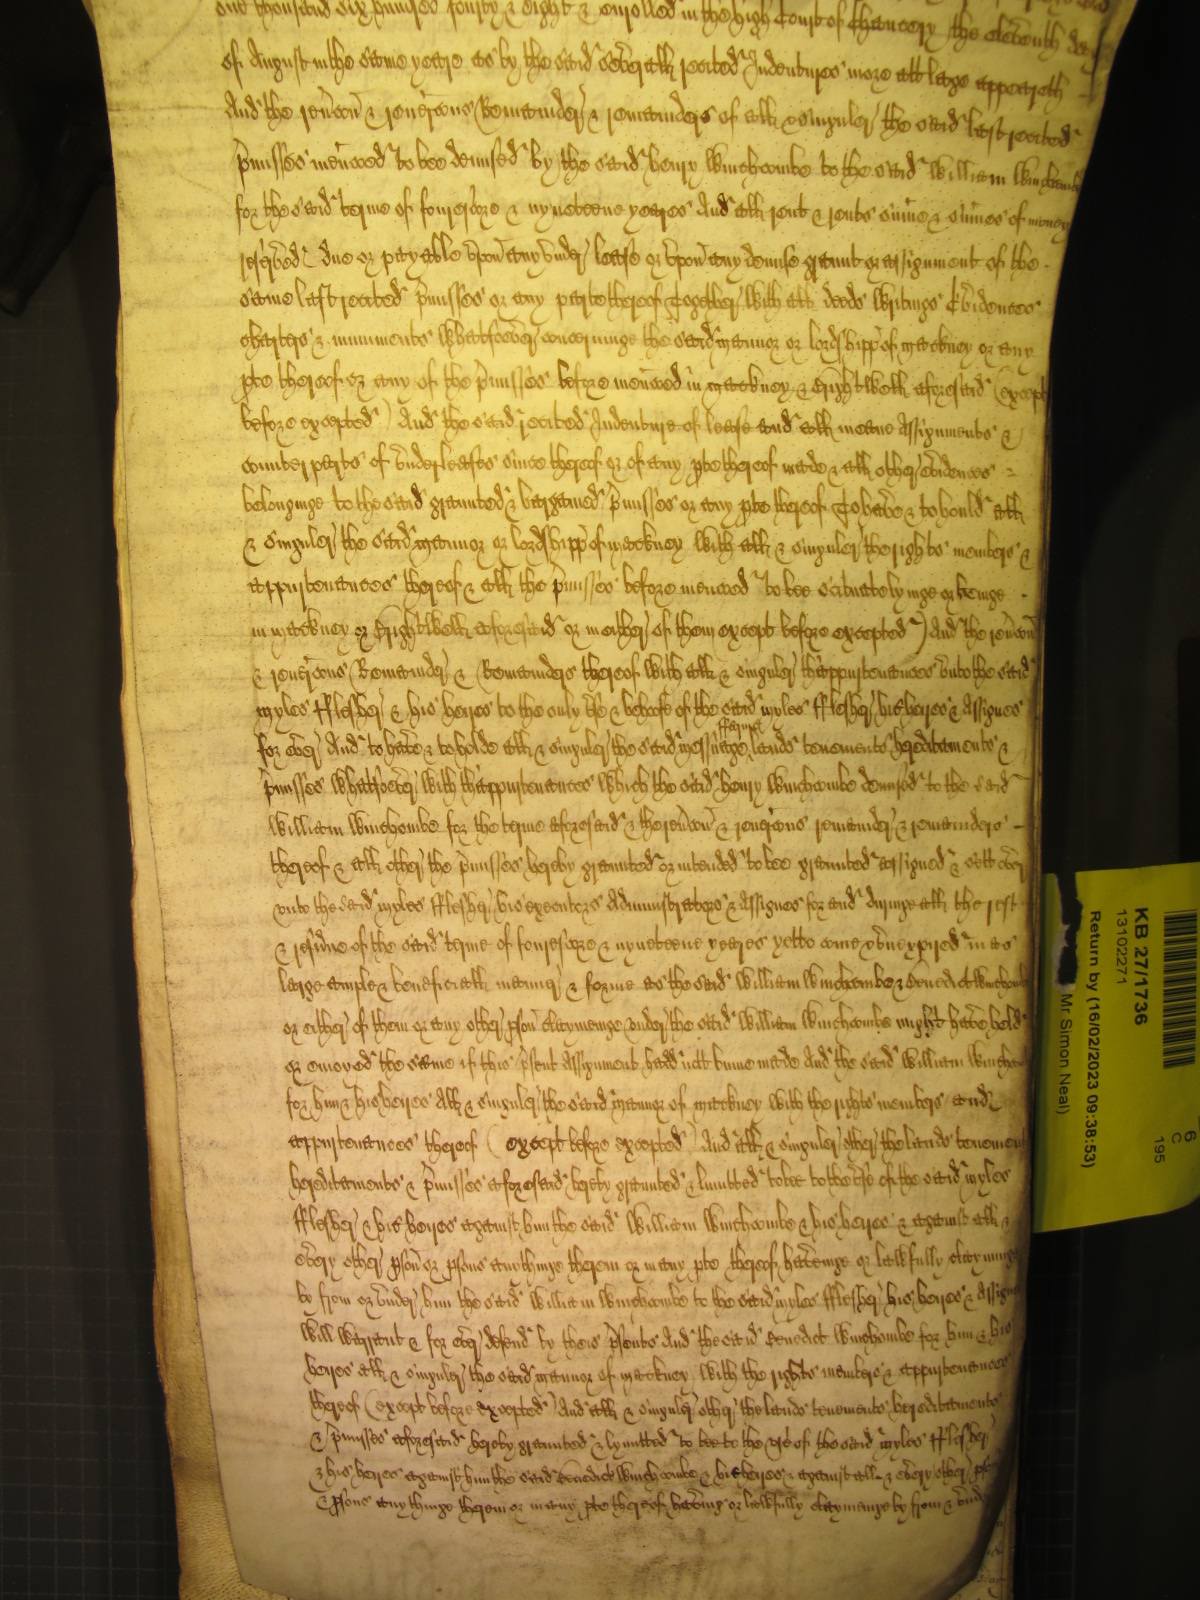 one thousand six hundred fourty & eight & enrolled in the high Court of Chancery the eleventh day
of August in the same yeare as by the said severall recited Indentures more att large appeareth
And the rev̄con & rev̄cons Remainder & remainders of all & singuler the said last recited
p̄misses menc̄oned to bee demised by the said Henry Winchcombe to the said William Winchcombe
for the said terme of fourescore & nyneteene yeares And all rent & rents sum̄e & sum̄es of money
reserved due or payable upon any under lease or upon any demise graunt or assignment of the
same last recited p̄misses or any parte thereof Together with all deeds writings Evidences
charters & muniments whatsoever concerninge the said mannor or lordshipp of Mackney or any
pte thereof or any of the p̄misses before menc̄oned in Mackney & Brightwell aforesaid (except
before excepted) And the said recited Indenture of lease and all meane Assignments &
counterparts of underleases since thereof or of any pte thereof made & all other evidences
belonginge to the said graunted & bargained p̄misses or any pte thereof To have & to hould all
& singuler the said mannor or lordshipp of Mackney with all & singuler the rights members &
appurtenances thereof & all the p̄misses before menc̄oned to bee scituate lyinge or beinge
in Mackney or Brightwell aforesaid or in either of them except before excepted) And the rev̄con
& rev̄cons Remainder & Remainders thereof with all & singuler thappurtenances unto the said
Myles Flesher & his heires to the only use & behoofe of the said Myles Flesher his heires & Assignes
for ever And to have & to holde all & singuler the said messuage farme lands tenements hereditaments &
p̄misses whatsoever with thappurtenances which the said Henry Winchcombe demised to the said
William Winchombe for the terme aforesaid & the rev̄con & rev̄cons remainder & remainders
thereof & all other the p̄misses hereby graunted or intended to bee graunted assigned & sett over
unto the said Myles Flesher his executors Administrators & Assignes for and duringe all the rest
& residue of the said terme of fourescore & nyneteene yeares yett to come & unexpired in as
large ample & beneficiall manner & forme as the said William Winchcombe & Benedict Winchcombe
or either of them or any other pson claymeinge under the said William Winchcombe might have held
or enioyed the same if this p̄sent Assignment hadd nott binne made And the said William Winchcombe
for him & his heires All & singuler the said mannor of Mackney with the rights members and
appurtenances thereof (except before excepted) And all & singuler other the lands tenements
hereditaments & p̄misses aforesaid hereby graunted & limitted to bee to the use of the said Myles
Flesher & his heires against him the said William Winchcombe & his heires & against all &
every other pson or psons anythinge therein or in any pte thereof haveinge or lawfully clayminge
by from or under him the said William Winchcombe to the said Myles Flesher his heires & Assignes
will warrant & for ever defend by theis p̄sents And the said Benedict Winchcombe for him & his
heires all & singuler the said mannor of Mackney with the rights members & appurtenances
thereof (except before excepted) And all & singuler other the lands tenements hereditaments
& p̄misses aforesaid hereby graunted & lymitted to bee to the use of the said Myles Flesher
& his heires against him the said Benedict Winchcombe & his heires & against all & every other pson
& psons any thinge therein or in any pte thereof haveing or lawfully claymeinge by from & under
6
C
195
KB 27/1736
13102271
Return by (16/02/2023 09:38:53)
Mr Simon Neal)